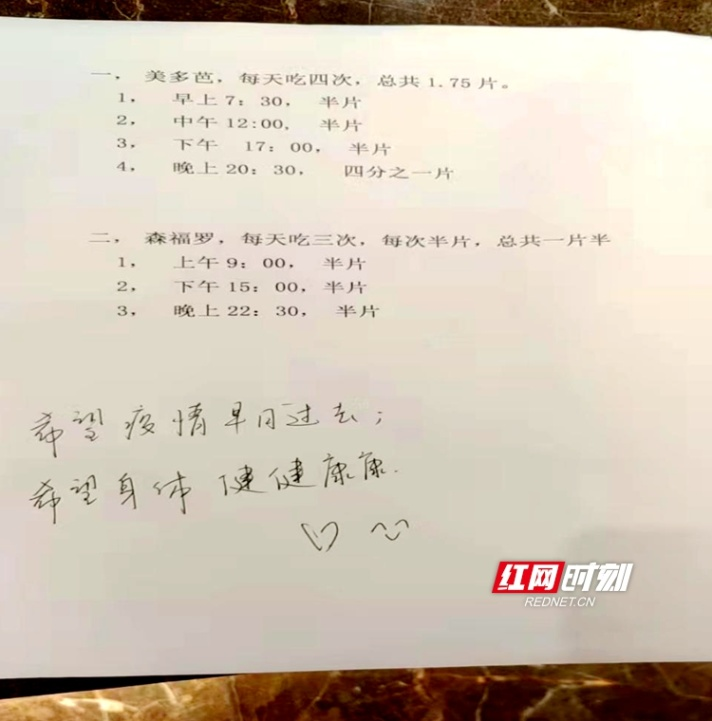 一， 美多芭，每天吃四次，总共1.75片。
1， 早上7：30， 半片
2， 中午12:00， 半片
3， 下午 17：00， 半片
4， 晚上20：30， 四分之一片
二， 森福罗，每天吃三次，每次半片，总共一片半
1， 上午9：00， 半片
2， 下午15：00， 半片
3， 晚上22：30， 半片
希望疫情早日过去；
希望身体健健康康.
红网时刻
REDNET.CN